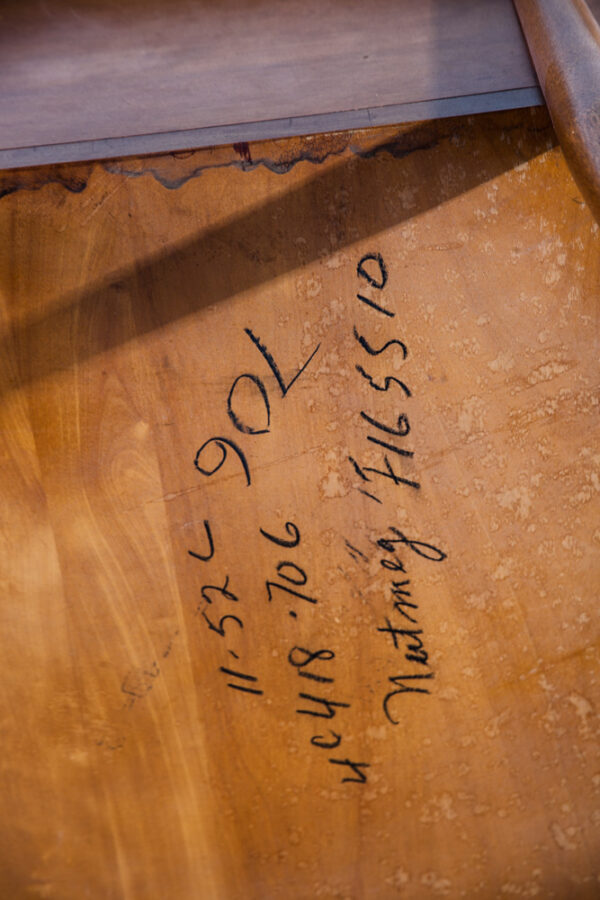 11.52 L 90L
4C418.706
Nutmeg '7165510